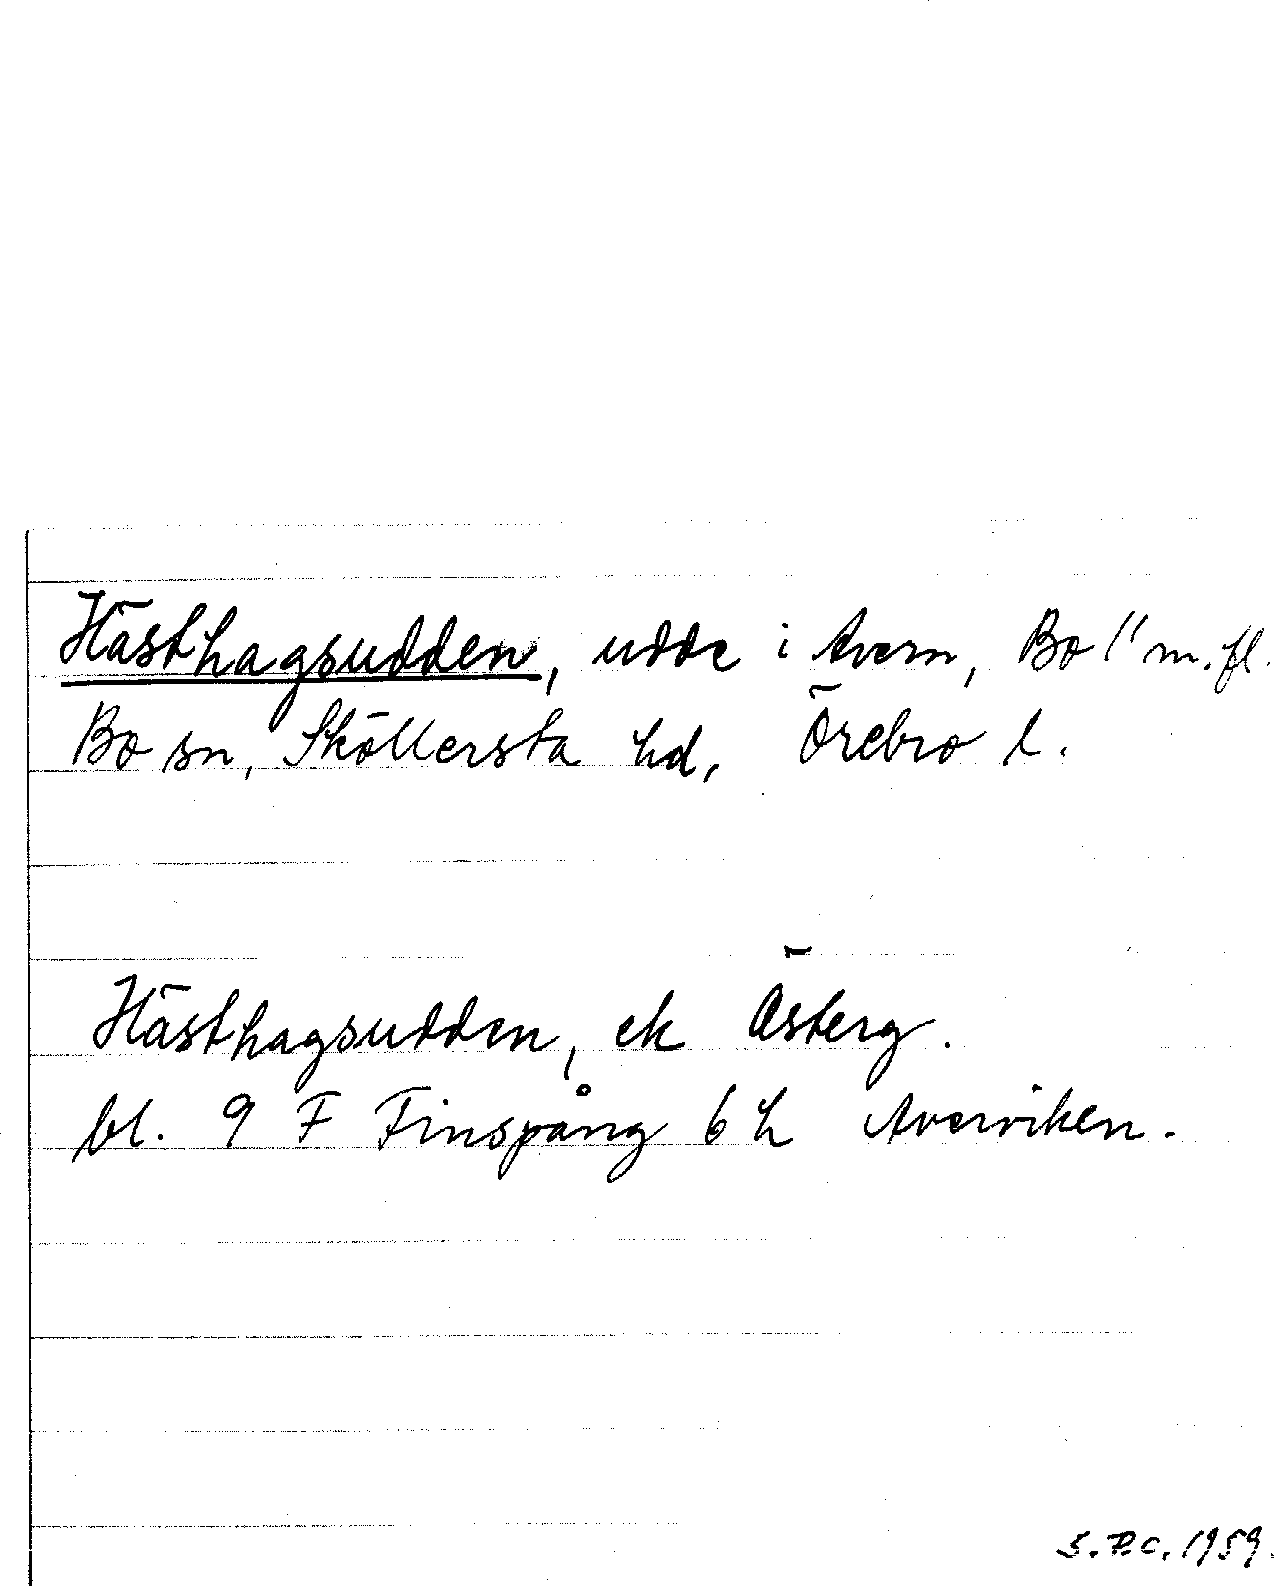 Hästhagsudden, udde i Avern, Bo 1" m.fl.
Bo sn, Sköllersta hd, Örebro l.
Hästhagsudden, ek Österg.
bl. 9 F Finspång 6 h Averviken.
S.P.C. 1959.